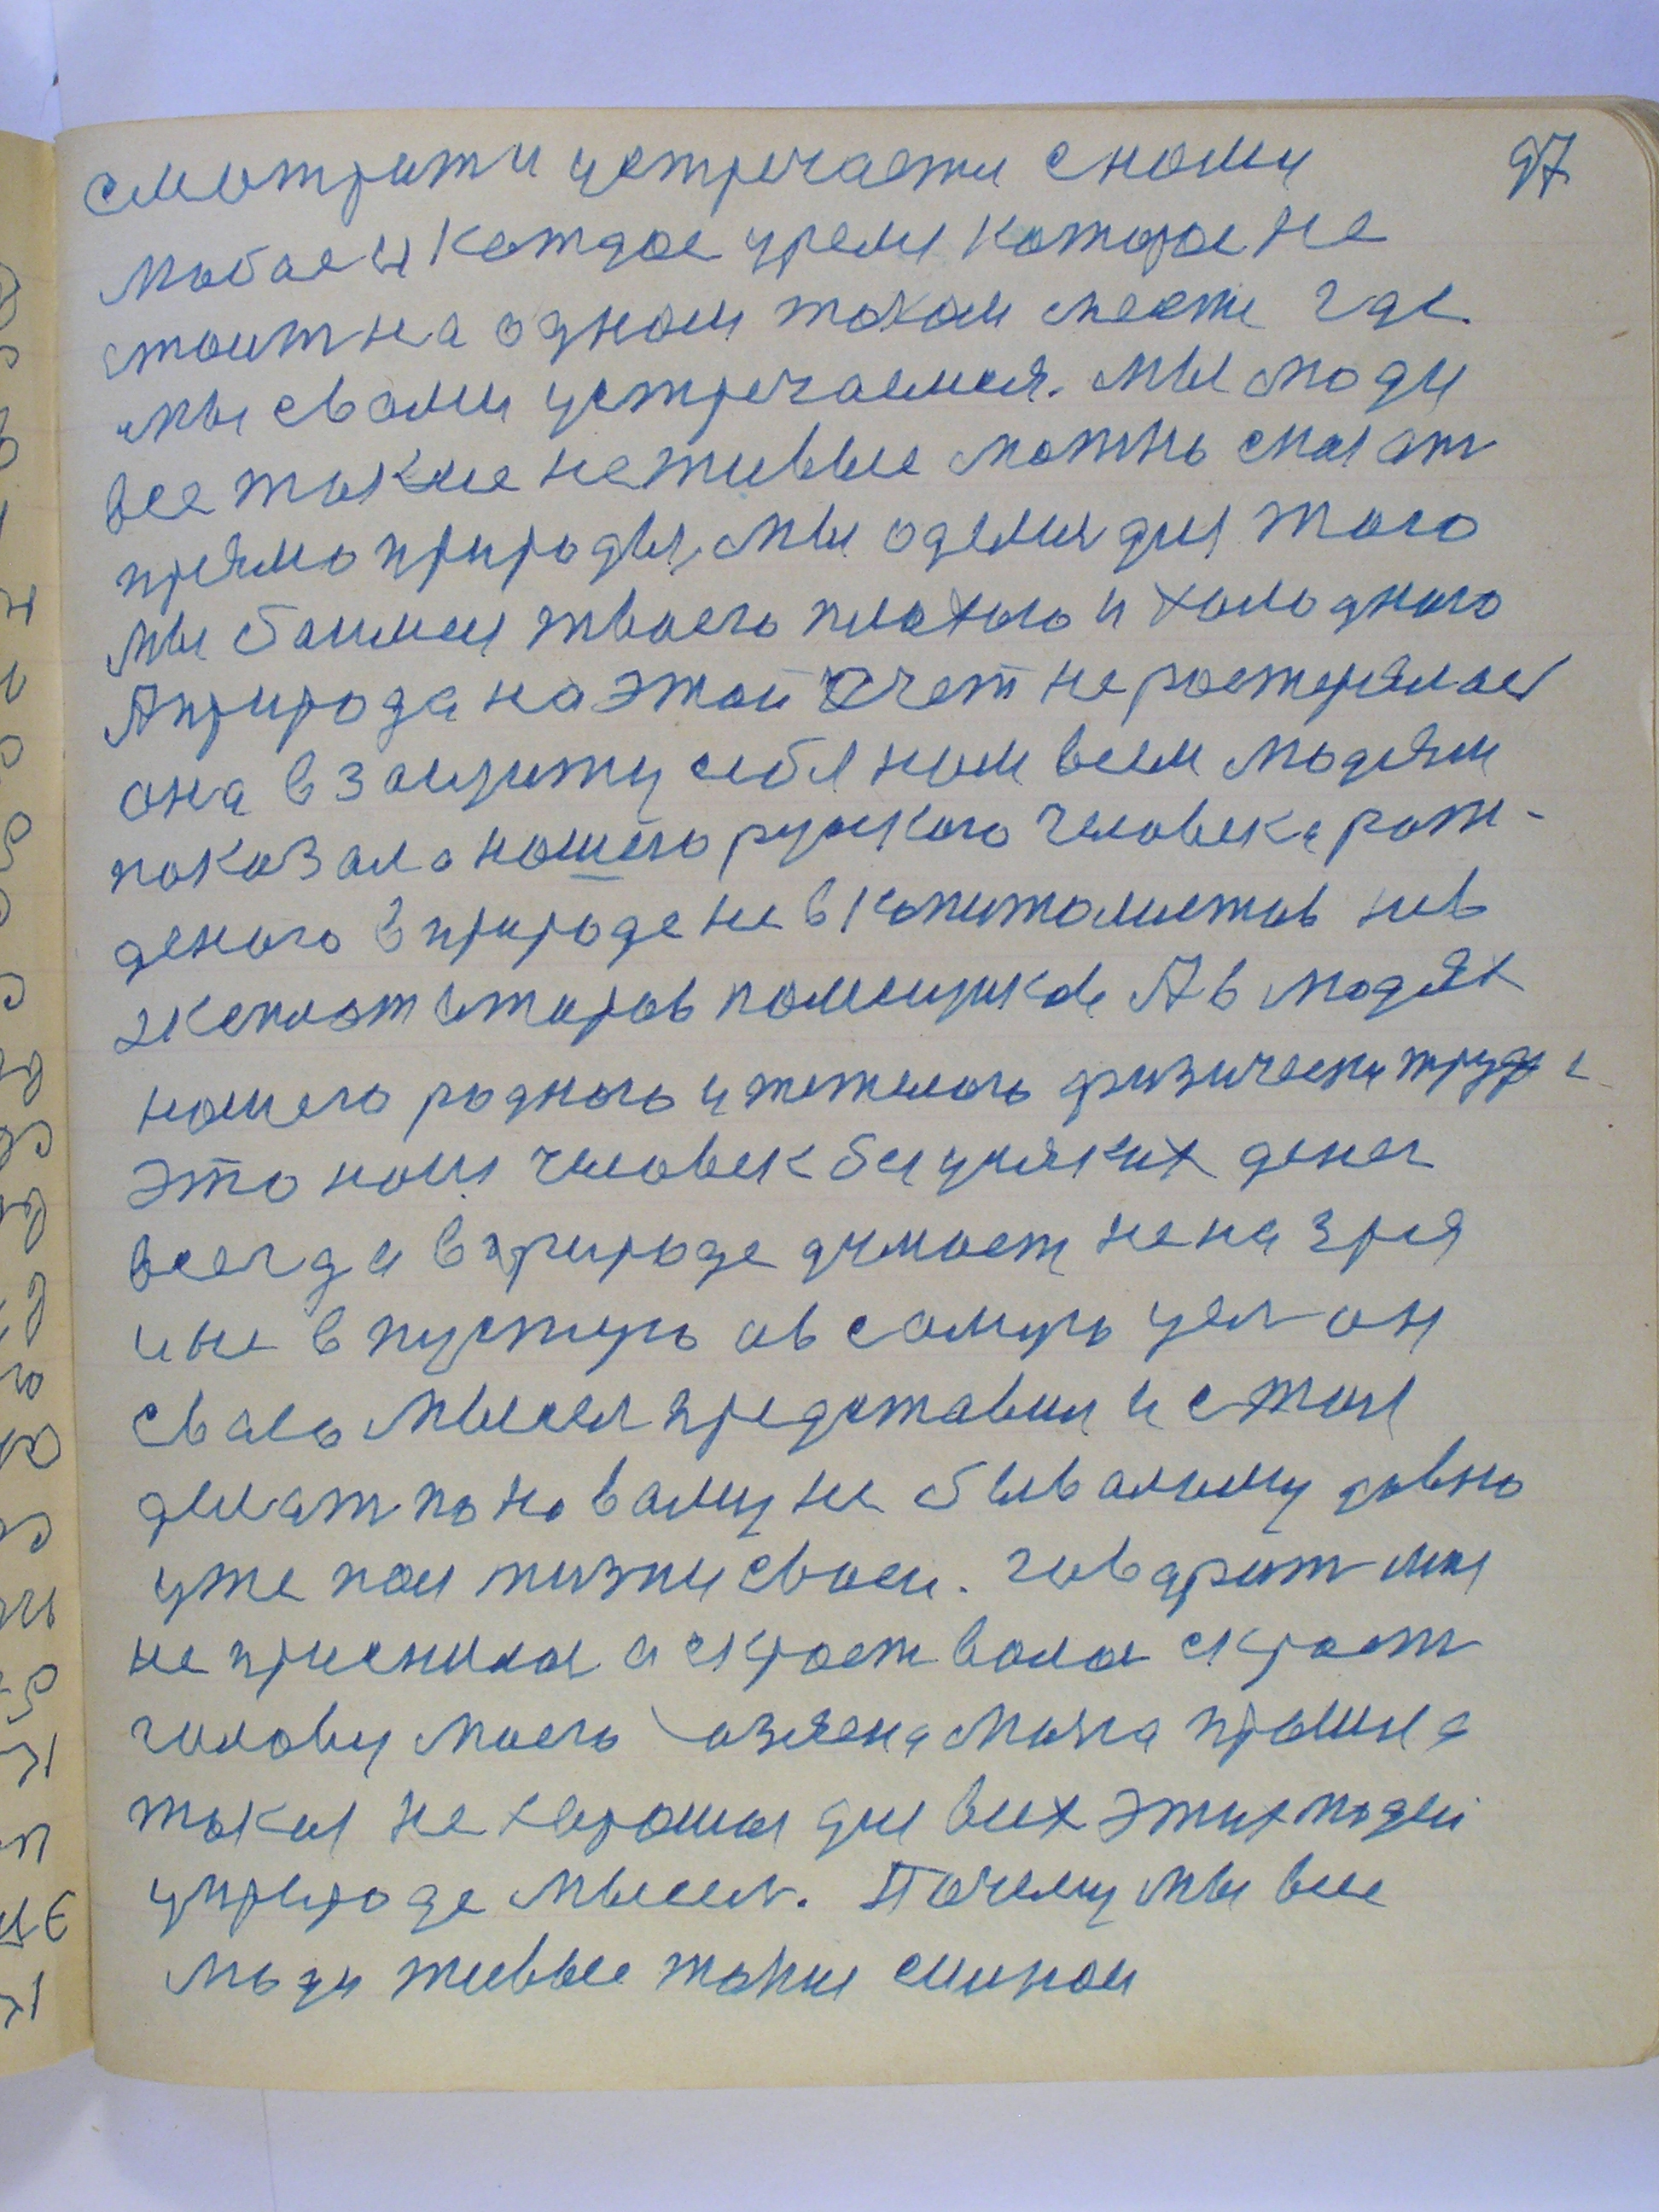 97
смотрити устречаети с нами
любое и каждое уремя которое не
стоит на одном таком месте где
мы свами устречаемся. мы люди
все такие не живые можно сказат
прямо природы, мы одемся для того
мы боимся твоего плохого и холодного
А природа на этой счет не ростерялася
она в защиту себя нам всем людям
показала нашего руского человека рож-
деного в природе не в капитолистов не в
эксплотаторов помещиков А в людях
нашего родного и тежелого физически труда
это наш человек без усяких денег
всегда в природе думает не на зря
и не в пустую а в самую цел он
свою мысел представил и стал
делат по новаму не бывалому давно
уже пои жизни своеи. говарит мня
не приснилос а скрозт волоса скрозт
голову мою лазяена мыла прошла
такая не хорошая для всех этих людей
уприроде мысел. Почему мы все
люди живые только